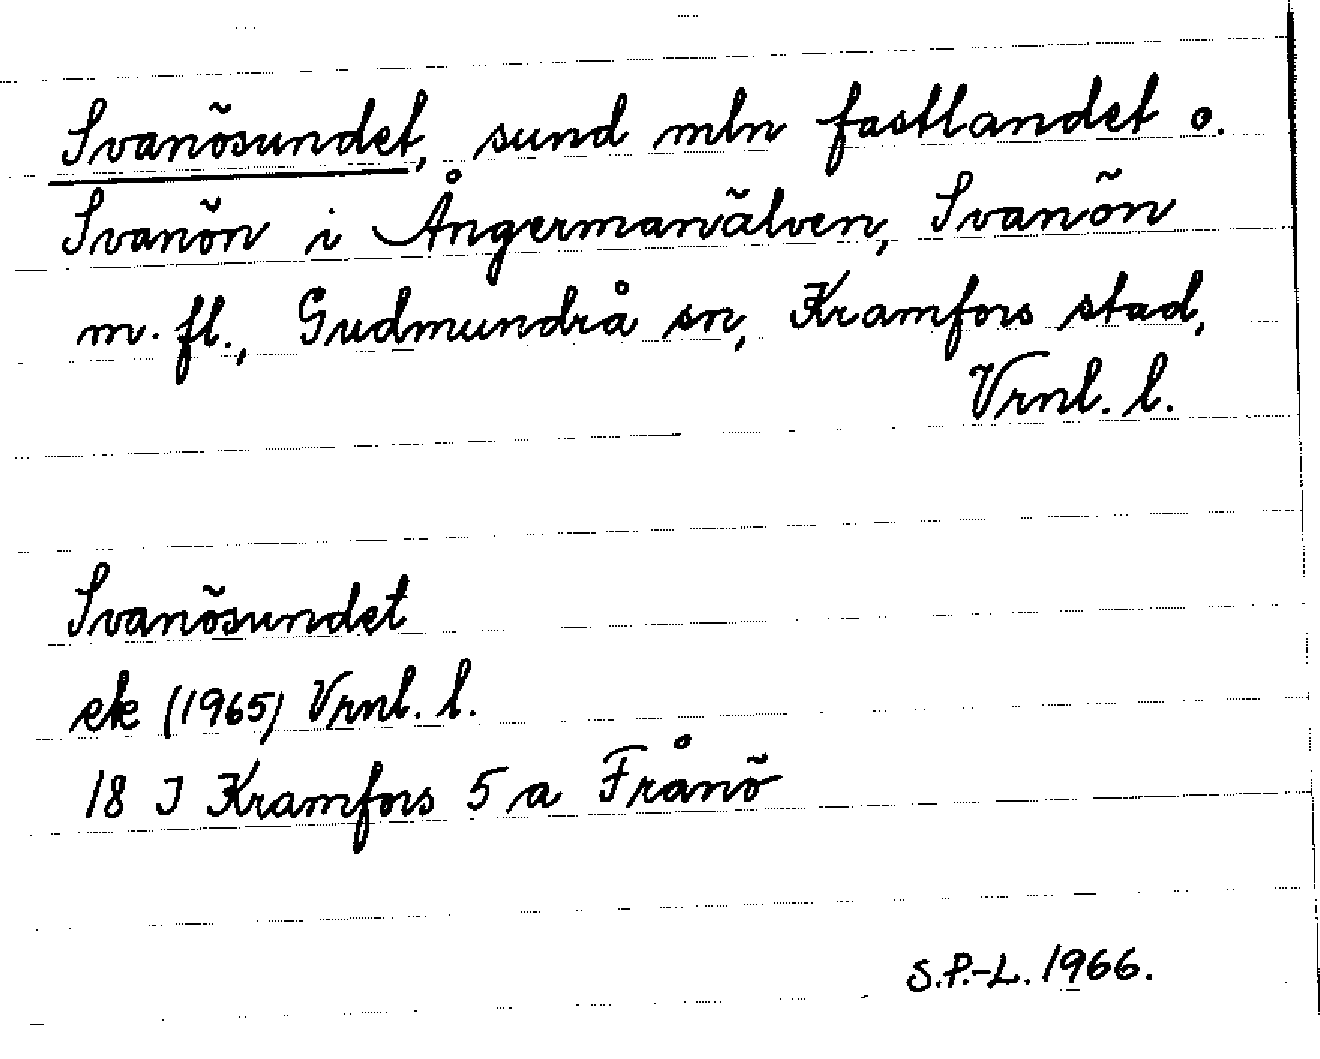 Svanösundet, sund mln fastlandet o.
Svanön i Ångermanälven, Svanön
m. fl., Gudmundrå sn, Kramfors stad,
Vrnl. l.
Svanösundet
ek (1965) Vrnl. l.
18 J Kramfors 5 a Frånö
S.P.-L. 1966.